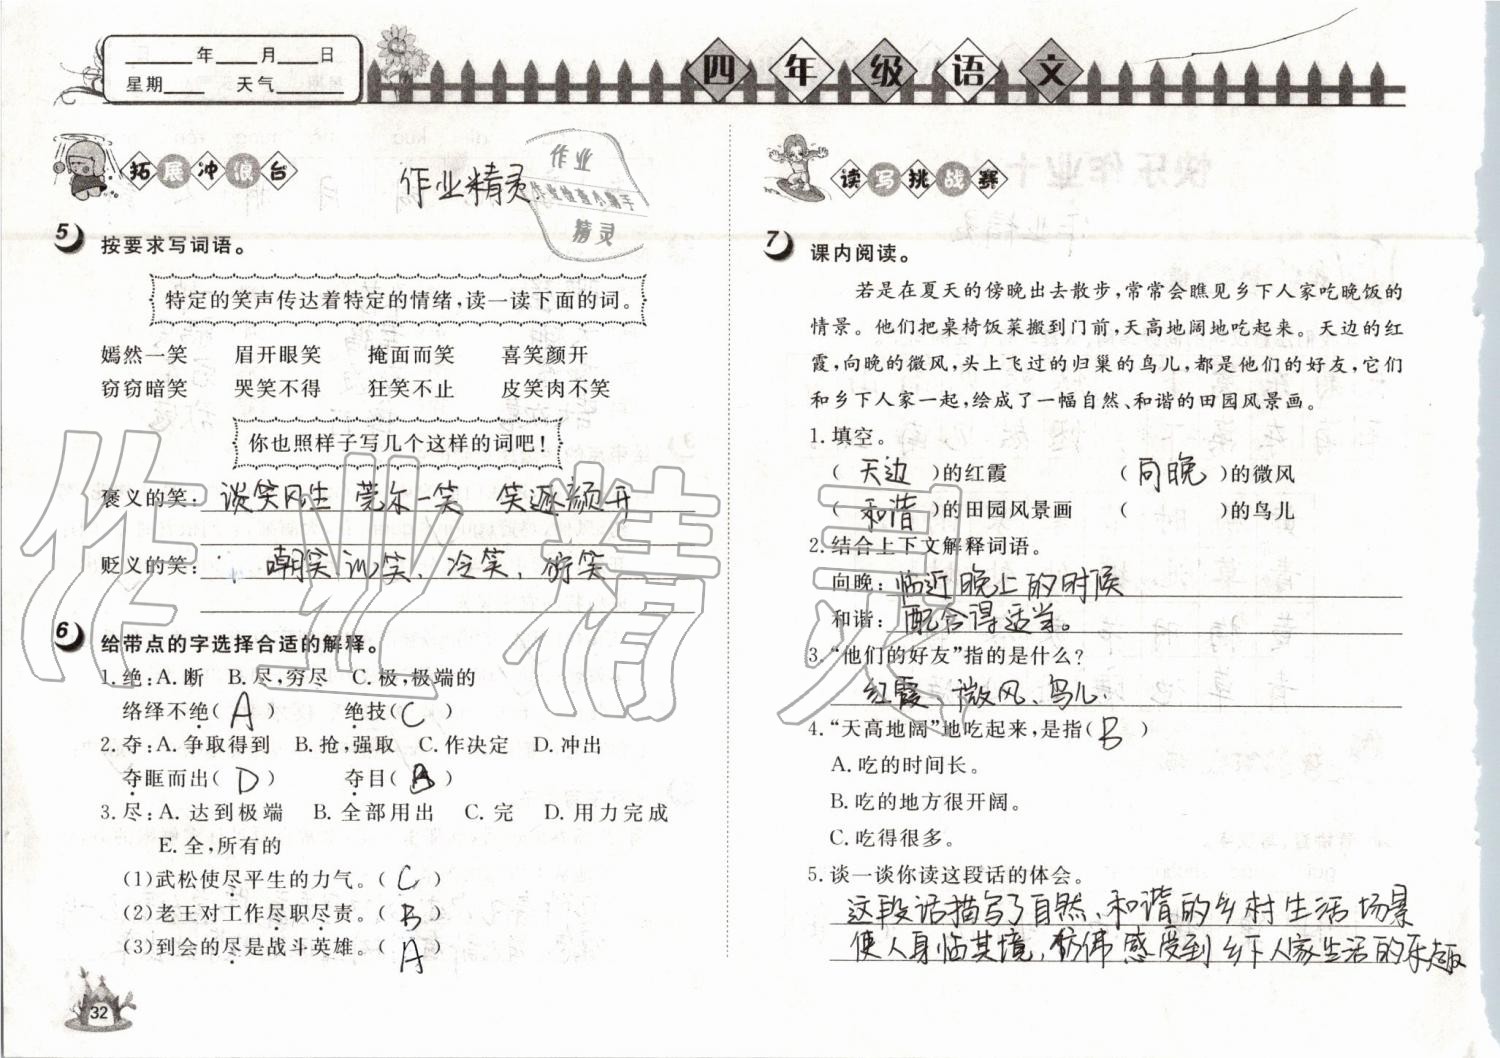 ____年____月____日
星期____ 天气______
四年级语文
拓展冲浪台
作业精灵
作业
作业检查小助手
精灵
5 按要求写词语。
特定的笑声传达着特定的情绪,读一读下面的词。
嫣然一笑 眉开眼笑 掩面而笑 喜笑颜开
窃窃暗笑 哭笑不得 狂笑不止 皮笑肉不笑
你也照样子写几个这样的词吧!
褒义的笑: 谈笑风生 莞尔一笑 笑逐颜开
贬义的笑: 嘲笑 讥笑、冷笑、奸笑
6 给带点的字选择合适的解释。
1. 绝:A. 断 B. 尽,穷尽 C. 极,极端的
络绎不绝( A ) 绝技( C )
2. 夺:A. 争取得到 B. 抢,强取 C. 作决定 D. 冲出
夺眶而出( D ) 夺目( B )
3. 尽:A. 达到极端 B. 全部用出 C. 完 D. 用力完成
E. 全,所有的
(1)武松使尽平生的力气。( C )
(2)老王对工作尽职尽责。( B )
(3)到会的尽是战斗英雄。( A )
32
读写挑战赛
7 课内阅读。
若是在夏天的傍晚出去散步,常常会瞧见乡下人家吃晚饭的
情景。他们把桌椅饭菜搬到门前,天高地阔地吃起来。天边的红
霞,向晚的微风,头上飞过的归巢的鸟儿,都是他们的好友,它们
和乡下人家一起,绘成了一幅自然、和谐的田园风景画。
1. 填空。
( 天边 )的红霞 ( 向晚 )的微风
( 和谐 )的田园风景画 ( )的鸟儿
2. 结合上下文解释词语。
向晚: 临近晚上的时候
和谐: 配合得适当。
3. “他们的好友”指的是什么?
红霞、微风、鸟儿.
4. “天高地阔”地吃起来,是指( B )
A. 吃的时间长。
B. 吃的地方很开阔。
C. 吃得很多。
5. 谈一谈你读这段话的体会。
这段话描写了自然、和谐的乡村生活场景
使人身临其境,仿佛感受到乡下人家生活的乐趣
作业精灵